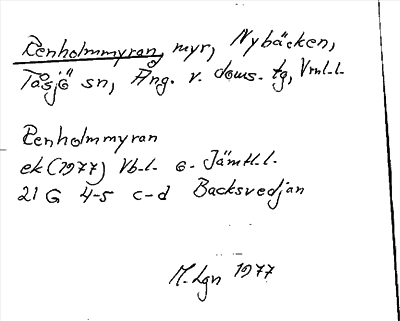 Renholmmyran, myr, Nybäcken,
Tåsjö sn, Ång. v. doms. tg, Vrnl.l.
Renholmmyran
ek (1977) Vb-l. o. Jämtl.l.
21 G 4-5 c-d Backsvedjan
M. Lgn 1977